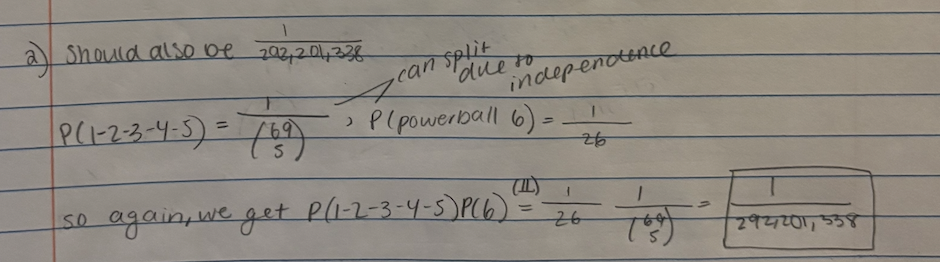 a) Should also be 1/292,201,338
can split due to independence
P(1-2-3-4-5) = 1/(69 5) , P(powerball 6) = 1/26
so again, we get P(1-2-3-4-5)P(6) (II)= 1/26 1/(69 5) = 1/292,201,338